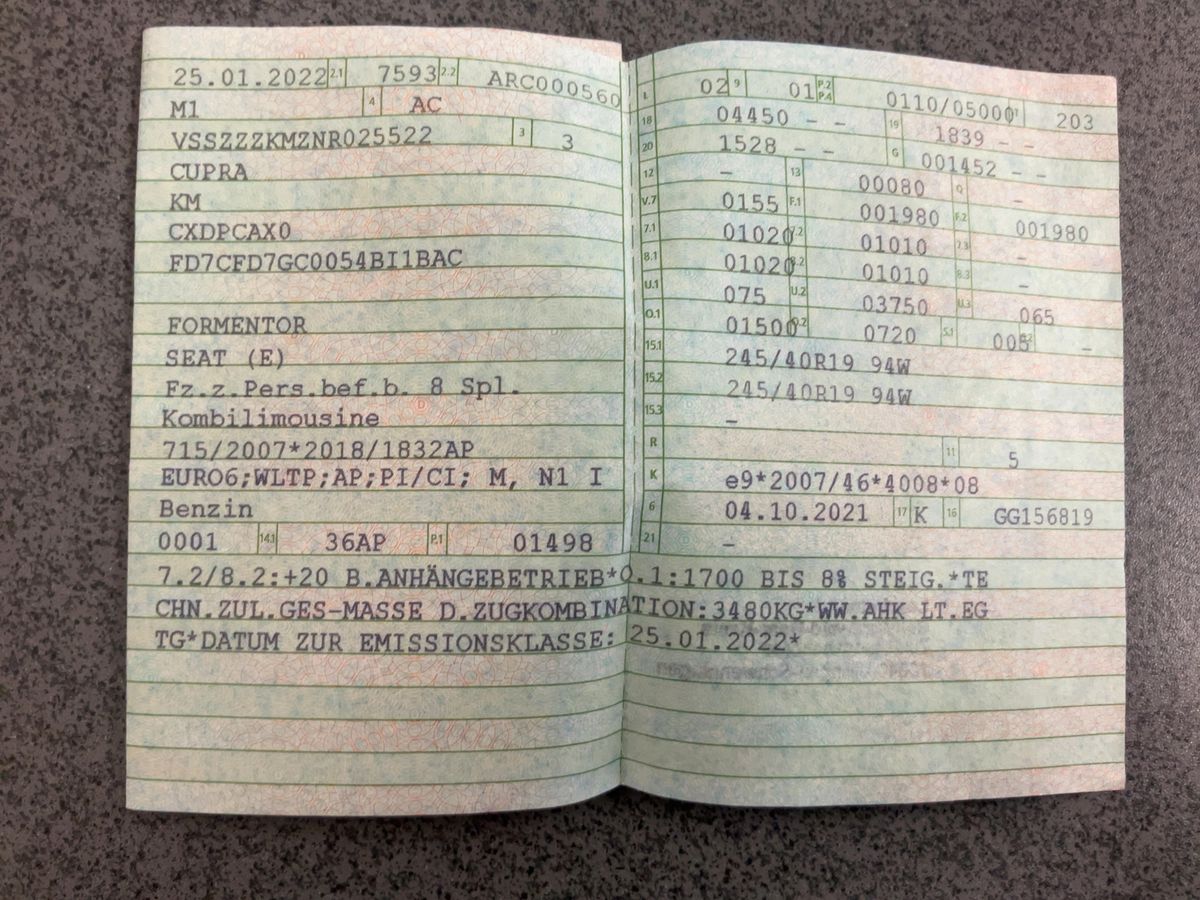 25.01.2022 2.1 7593 2.2 ARC000560
M1 4 AC
VSSZZZKMZNR025522 3 3
CUPRA
KM
CXDPCAX0
FD7CFD7GC0054BI1BAC
FORMENTOR
SEAT (E)
Fz.z.Pers.bef.b. 8 Spl.
Kombilimousine
715/2007*2018/1832AP
EURO6;WLTP;AP;PI/CI; M, N1 I
Benzin
0001 14.1 36AP P.1 01498
L 02 9 01 P.2 P.4 0110/05000 T 203
18 04450 - - 19 1839 - -
20 1528 - - G 001452 - -
12 - 13 00080 Q -
V.7 0155 F.1 001980 F.2 001980
7.1 01020 7.2 01010 7.3 -
8.1 01020 8.2 01010 8.3 -
U.1 075 U.2 03750 U.3 065
O.1 01500 O.2 0720 S.1 005 S.2 -
15.1 245/40R19 94W
15.2 245/40R19 94W
15.3 -
R 11 5
K e9*2007/46*4008*08
6 04.10.2021 17 K 16 GG156819
21 -
7.2/8.2:+20 B.ANHÄNGEBETRIEB*O.1:1700 BIS 8% STEIG.*TE
CHN.ZUL.GES-MASSE D.ZUGKOMBINATION:3480KG*WW.AHK LT.EG
TG*DATUM ZUR EMISSIONSKLASSE: 25.01.2022*